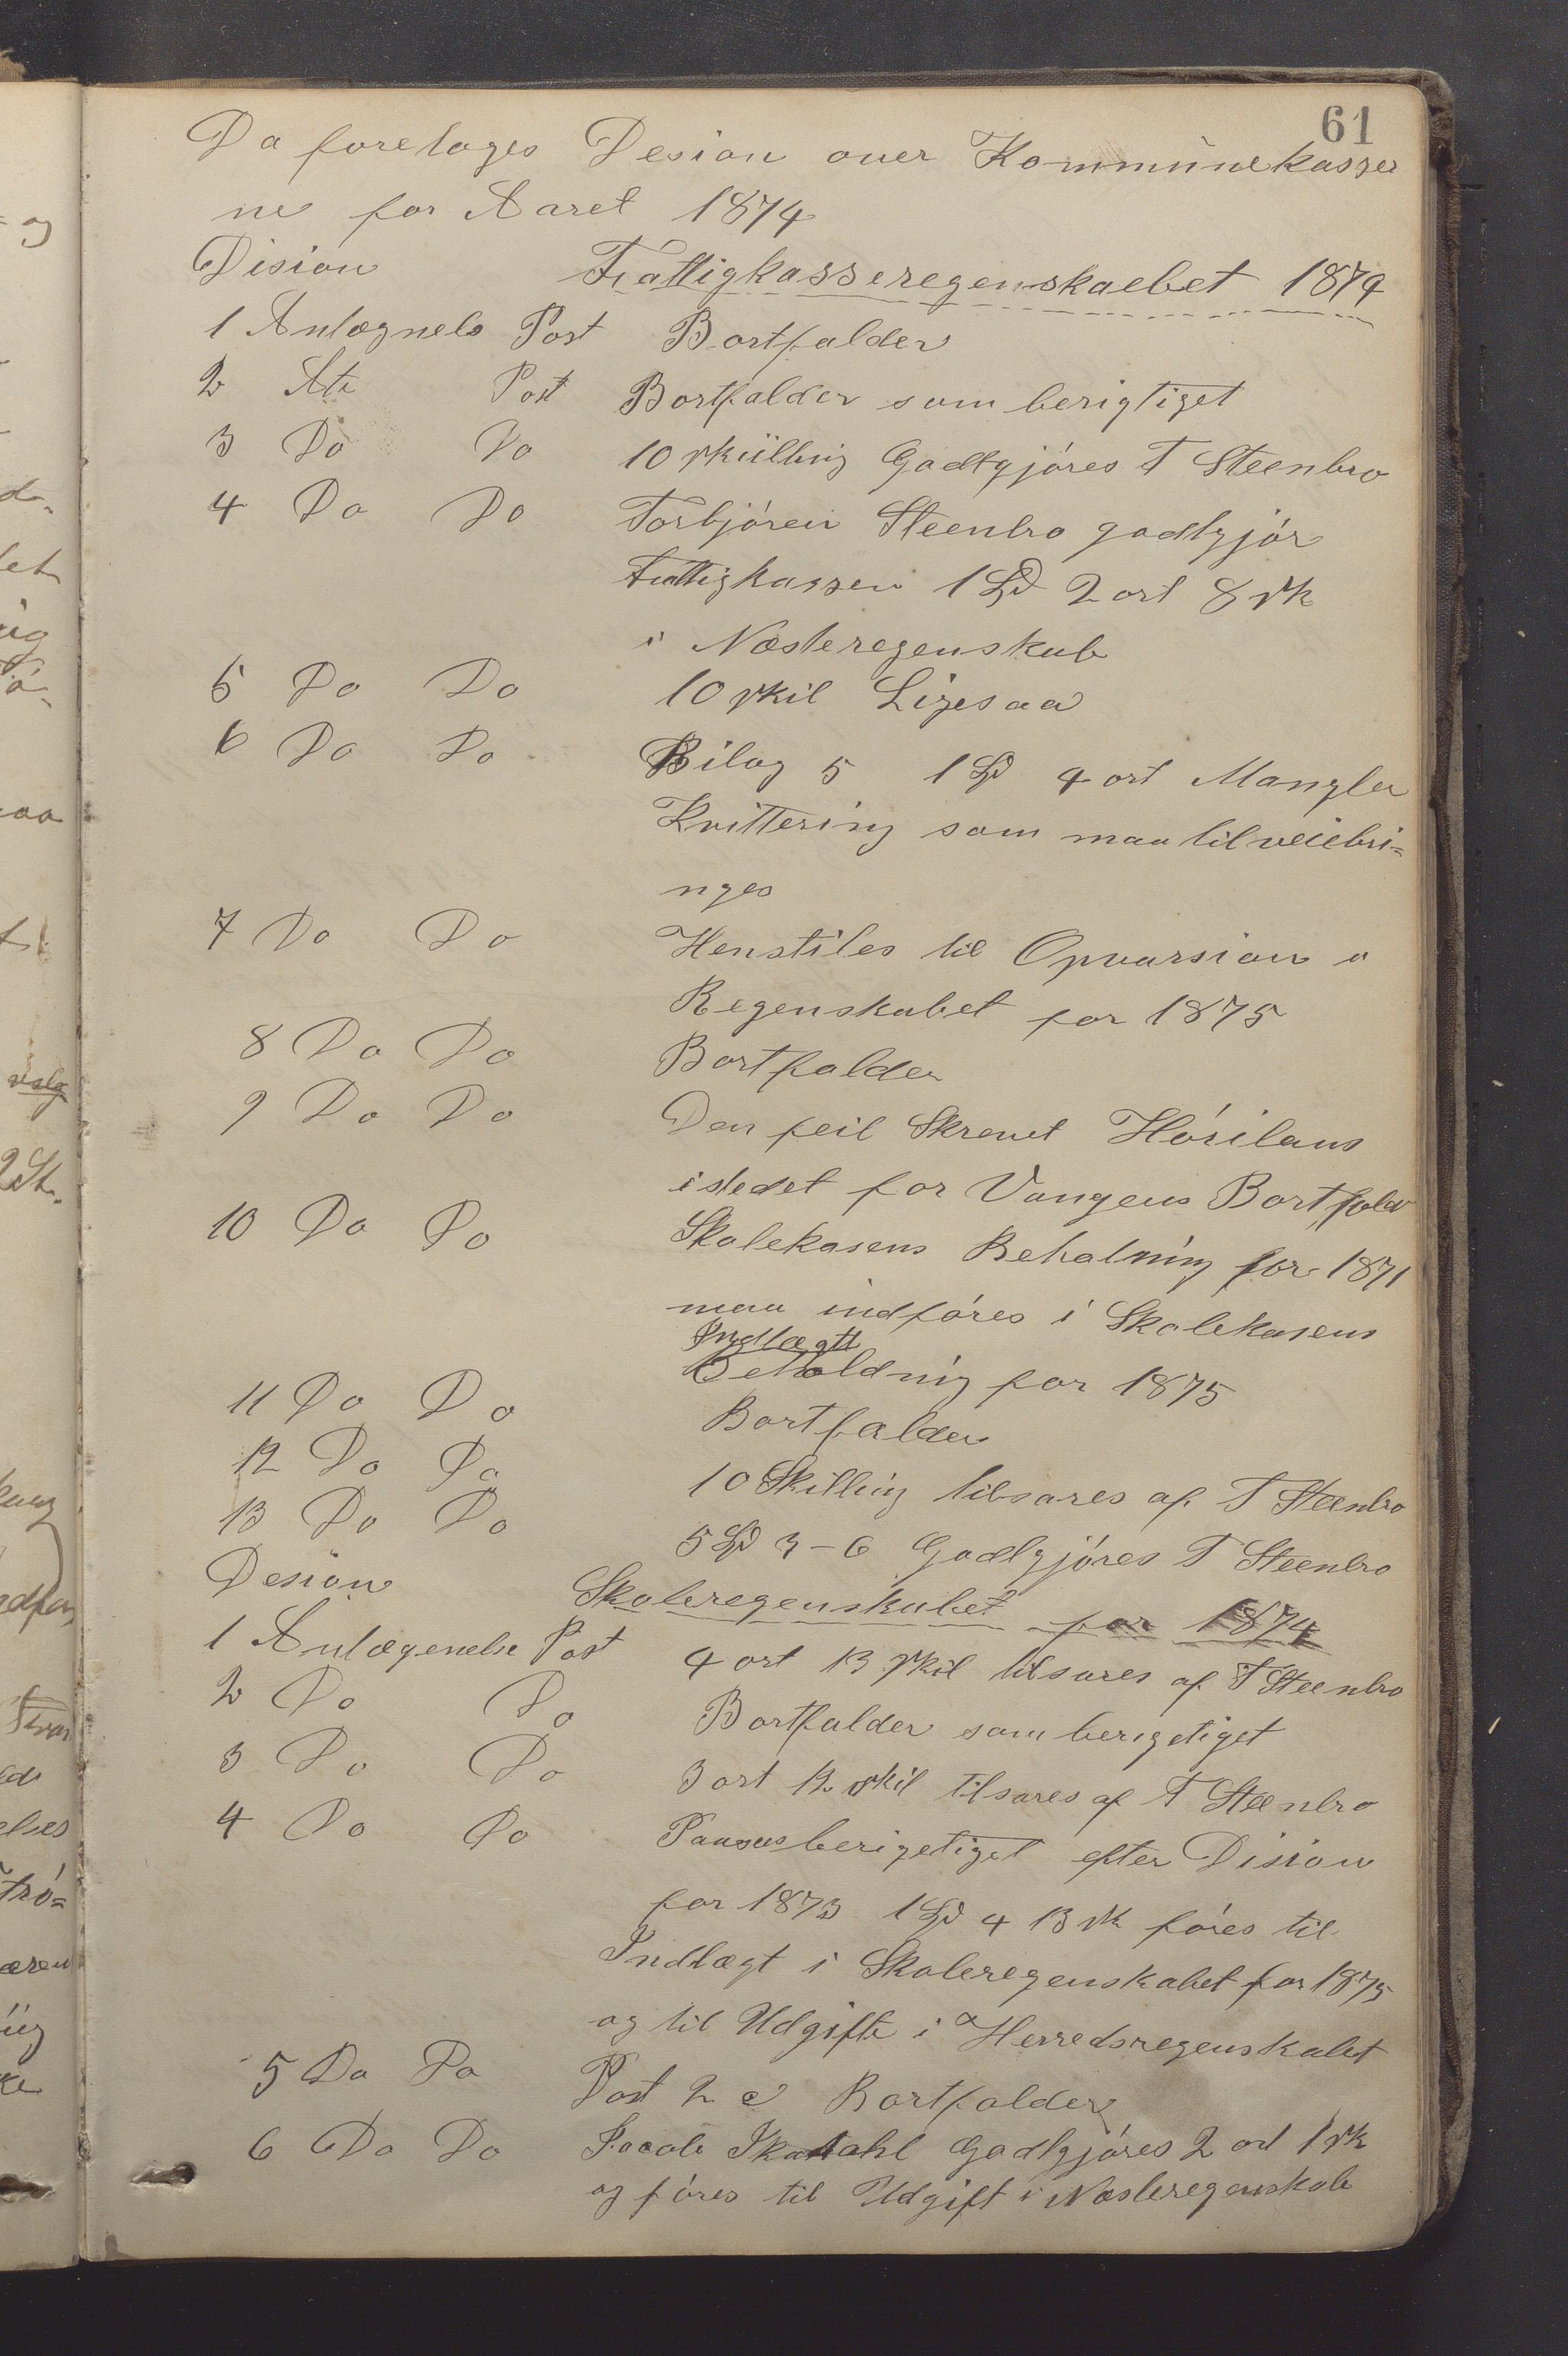 61
Da foretages Desion over Kommunekasser
ne for Aaret 1874
Dision Fattigkasseregenskaebet 1874
1 Antegnels Post Bortfalder
2 Post Bortfalder som berigtiget
3 Do Do 10 skilling Godtgjóres T Steenbro
4 Do Do Torbjóren Steenbro godtgjór
Fattigkassen 1 Spd 2 ort 8 sk
i Næsteregenskab
5 Do Do 10 skil Ligesaa
6 Do Do Bilag 5 1 Spd 4 ort Mangler
Kvittering som maa tilveiebri=
nges
7 Do Do Henstiles til a
Regenskabet for 1875
8 Do Do Bortfalder
9 Do Do Den feil Skrevet
istedet for Vangens Bortfald
10 Do Do Skolekasens Behalning for 1871
maa indfóres i Skolekasens
Indtægtt
Beholdning for 1875
11 Do Do Bortfalder
12 Do Do 10 Skilling tilsvares af T Steenbro
13 Do Do 5 Spd 3-6 Godtgjóres T Steenbro
Desion Skoleregenskabet for 1874
1 Antegenelse Post 4 ort 13 skil tilsvares af T Steenbro
2 Do Do Bortfalder som berigetiget
3 Do Do 3 ort 12 skil tilsares af T Steenbro
4 Do Do berigetiget efter Dision
for 1873 1 Spd 4 13 sk fóres til
Indtægt i Skoleregenskabet for 1875
og til Udgifte i Herredsregenskabet
5 Do Do Post 2 c Bortfalder
6 Do Do Jacob Godtgjóres 2 ort 1 sk
og fóres til Udgift i Næsteregenskab